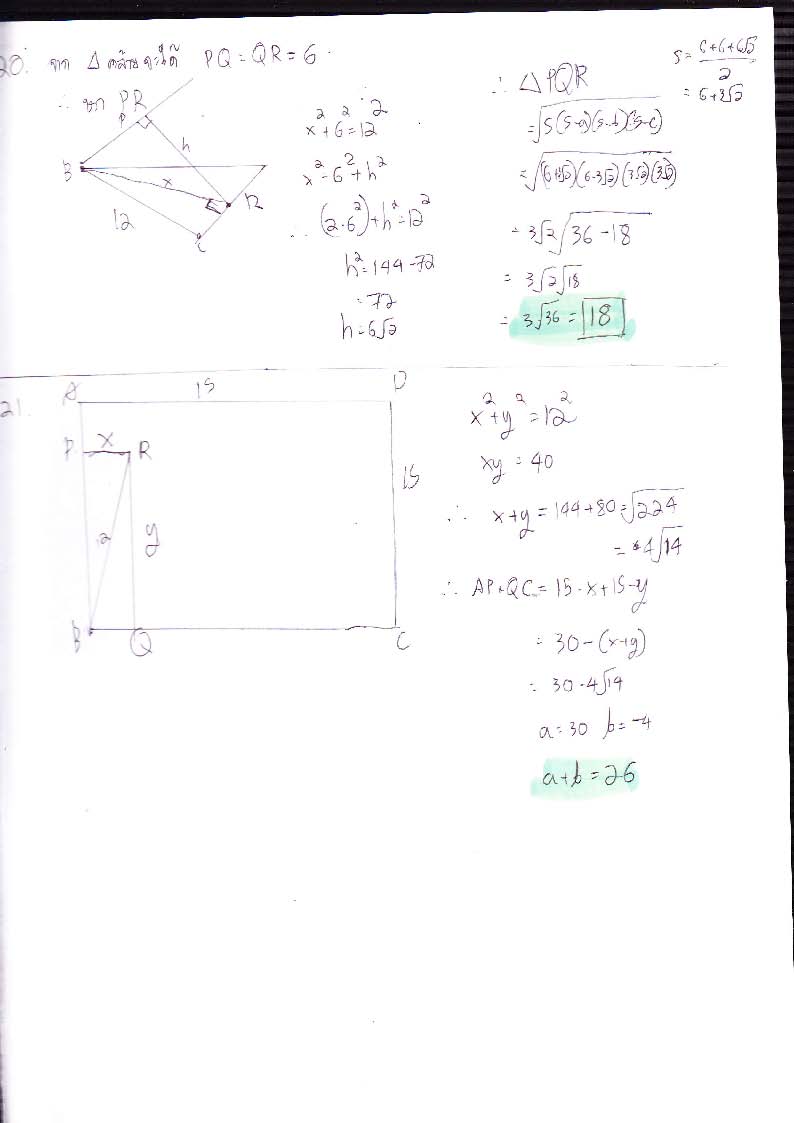 20. จาก Δ คล้ายจะได้ PQ = QR = 6
∴ หา PR
P
h
B
x
R
12
C
x² + 6² = 12²
x² = 6² + h²
∴ (2·6²) + h² = 12²
h² = 144 - 72
= 72
h = 6√2
∴ Δ PQR
= √S(S-a)(S-b)(S-c)
= √(6+3√2)(6-3√2)(3√2)(3√2)
= 3√2 √36 - 18
= 3√2 √18
= 3√36 = 18
S = 6+6+6√2 / 2
= 6+3√2
21.
A 15 D
P x R
15
12 y
B Q C
x² + y² = 12²
xy = 40
∴ x+y = 144+80 = √224
= 4√14
∴ AP+QC = 15-x+15-y
= 30-(x+y)
= 30-4√14
a = 30 b = -4
a+b = 26